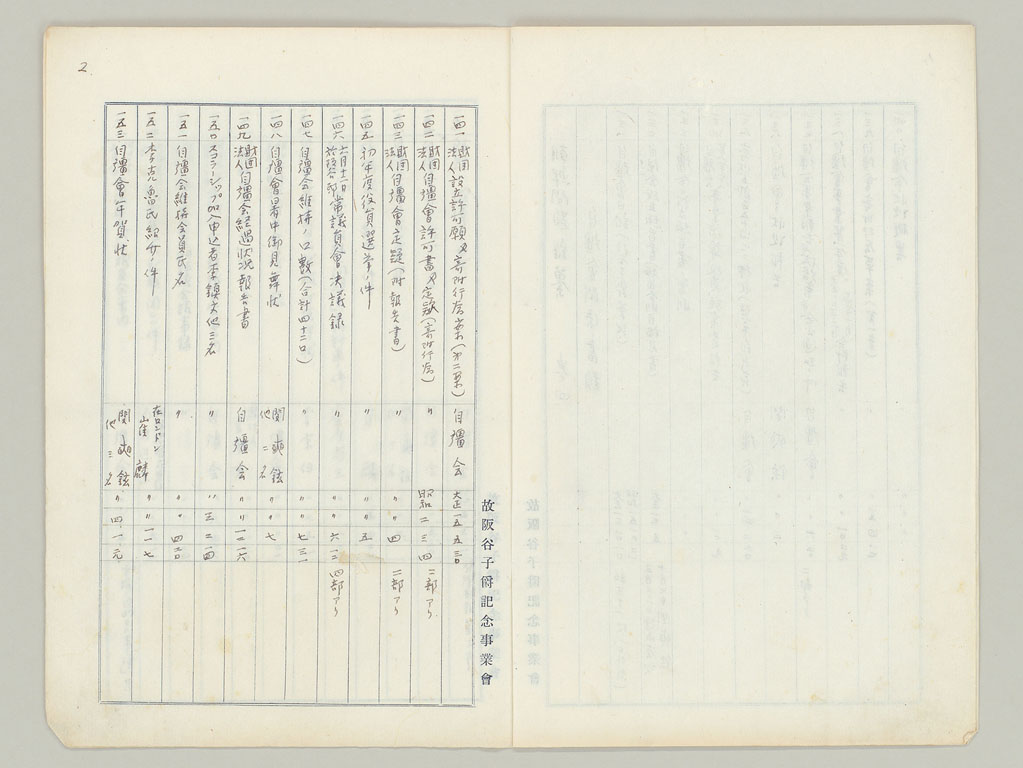 2
一四一 財団法人設立許可願及寄附行為案(第二案) 自彊会 大正一五 五 三〇
一四二 財団法人自彊會許可書及定款(寄附行為) 〃 昭和二 三 四 二部アリ
一四三 財団法人自彊會定款(附報告書) 〃 〃 〃 四 二部アリ
一四五 初年度役員選挙ノ件 〃 〃 〃 五
一四六 六月十二日 常議員會決議録 〃 〃 〃 六 一二 四部アリ
一四七 自彊会維持ノ口数(合計四十二口) 〃 〃 〃 七 三一
一四八 自彊會暑中御見舞状 閔奭鉉 他二名 〃 〃 七
一四九 財団法人自彊会経過状況報告書 自彊会 〃 〃 一二 一六
一五〇 スコラーシップ加入申込者李鎮文他三名 〃 〃 三 二 四
一五一 自彊会維持会員氏名 〃 〃 〃 四 二〇
一五二 李克魯氏紹介ノ件 在ロンドン 〃 〃 一一 七
一五三 自彊會年賀状 閔奭鉉 他三名 〃 四 一 元
故阪谷子爵記念事業會